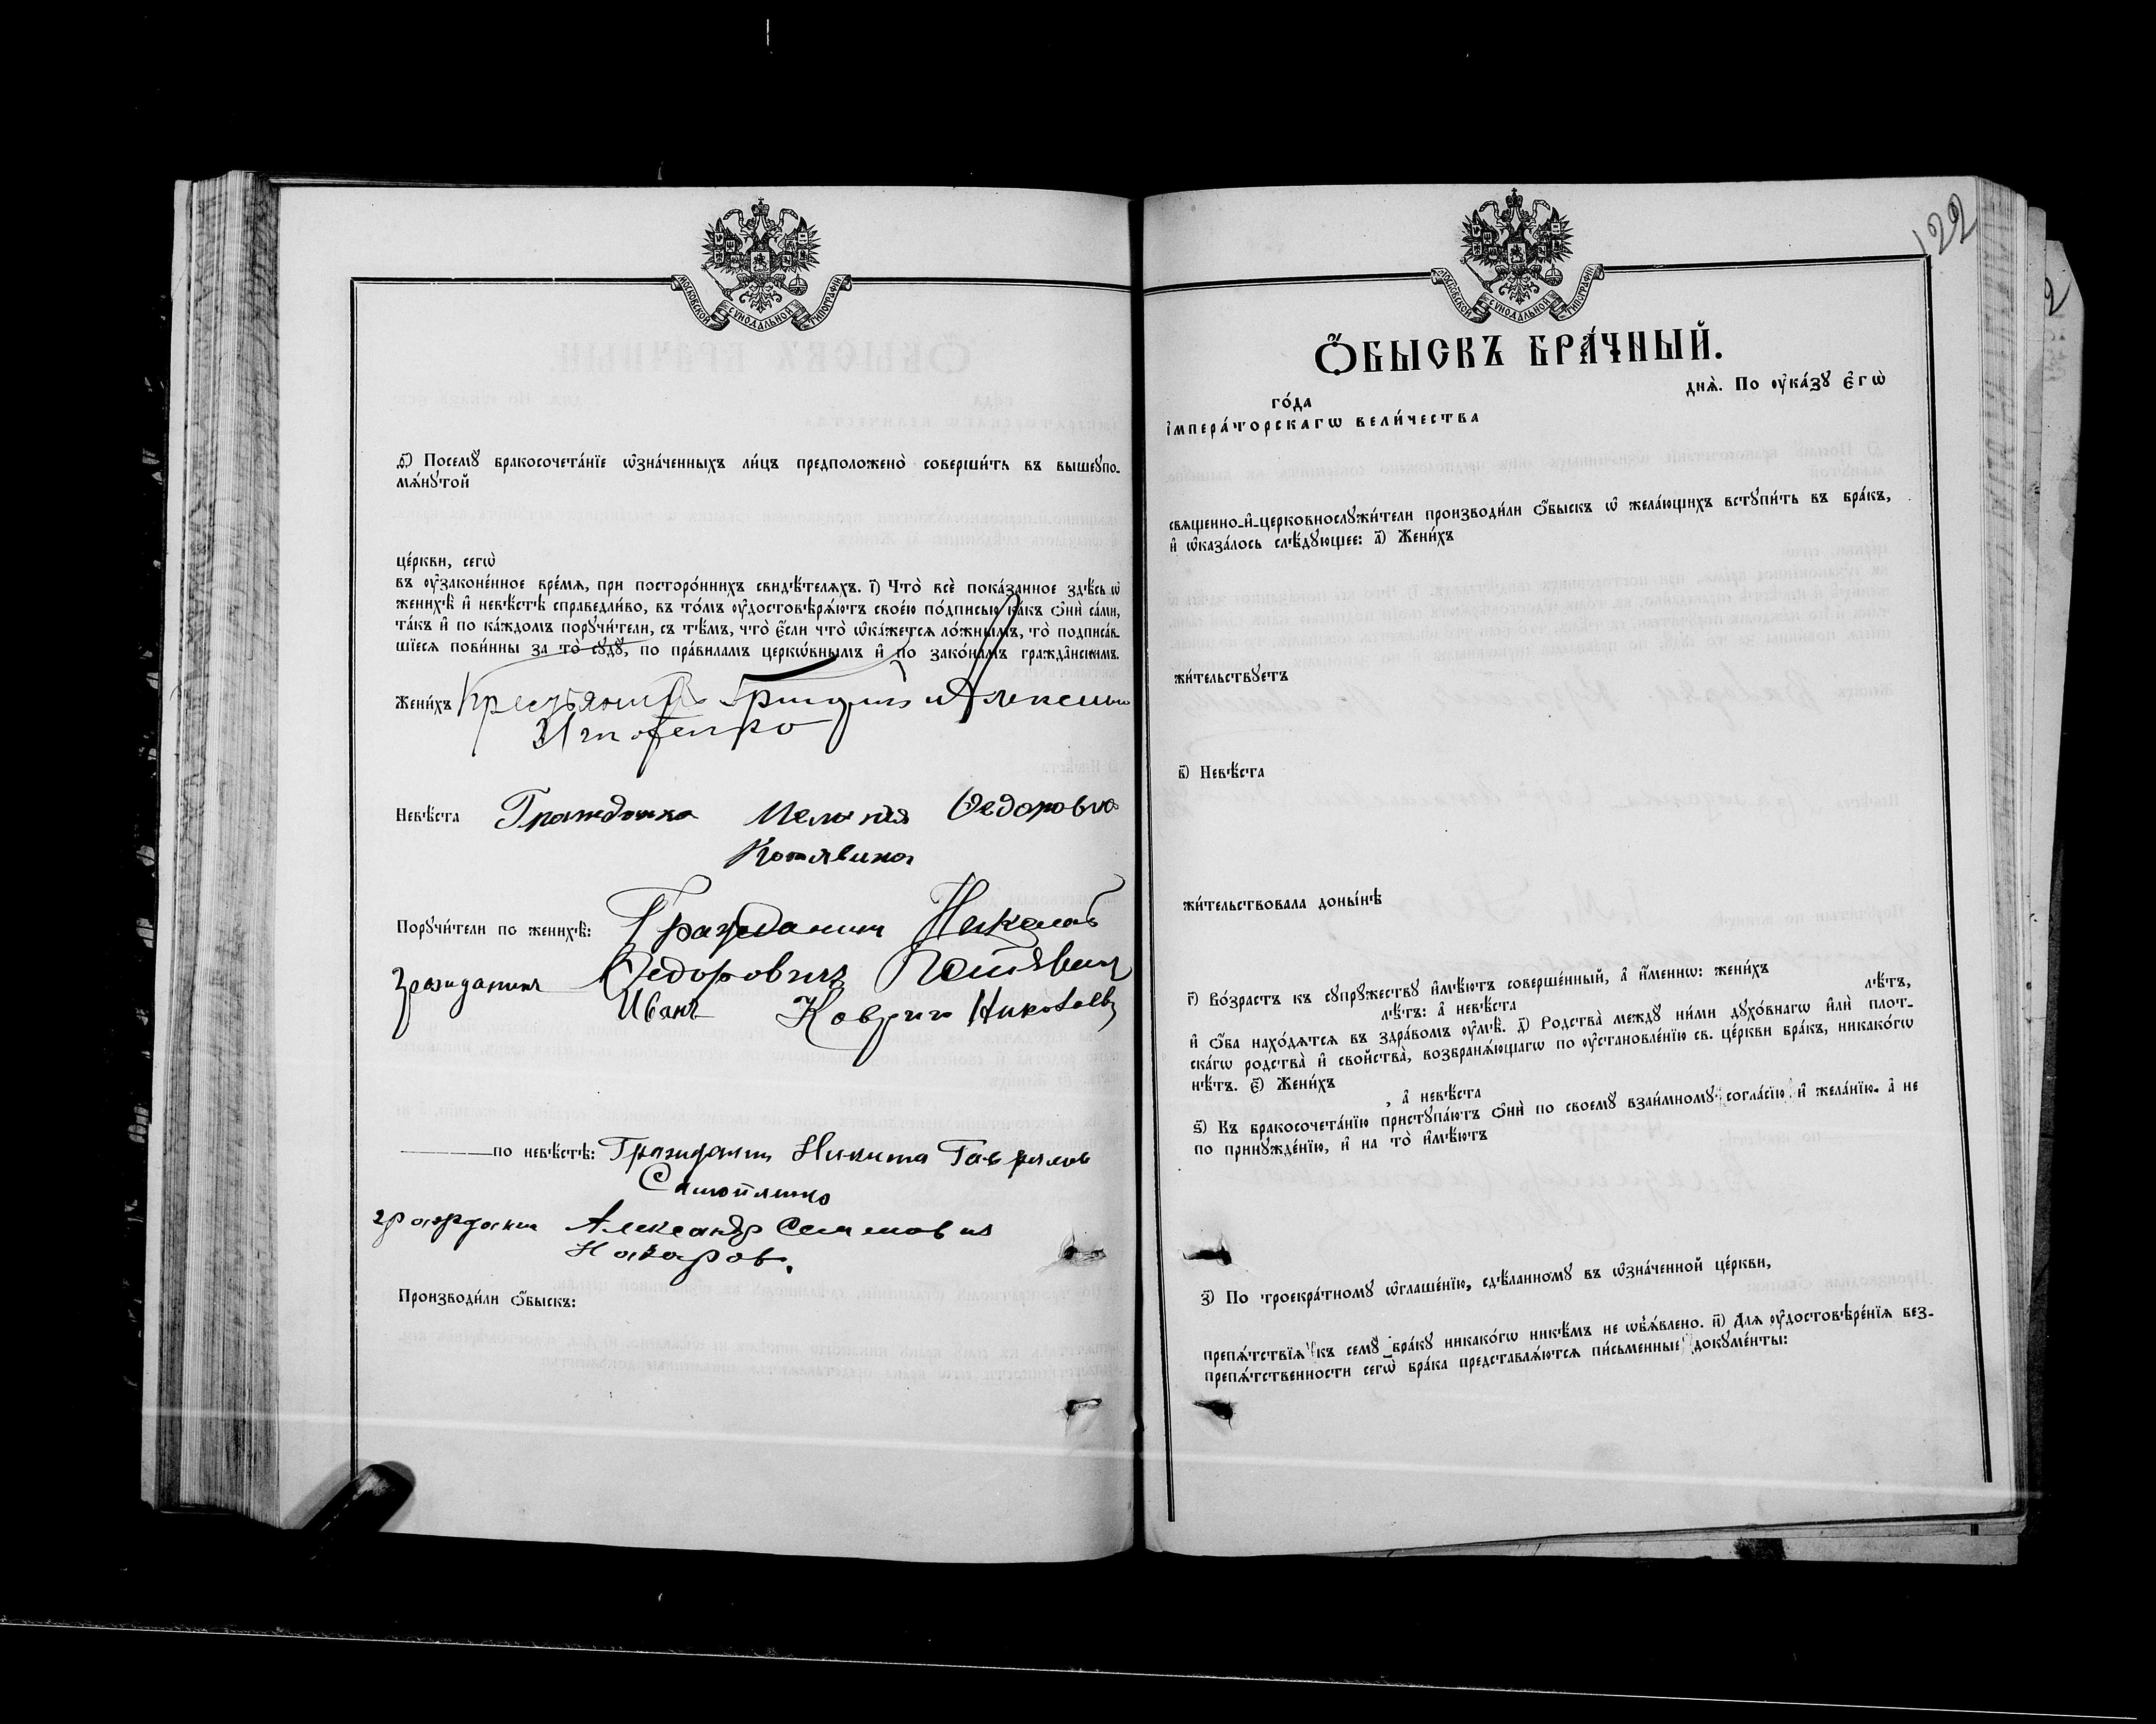 МОСКОВСКОЙ СѴНОДАЛЬНОЙ ТИПОГРАФІИ
д҃) Посемꙋ̀ бракосочета́нїе ѡ҆зна́ченныхъ ли́цъ предположено̀ соверши́ть въ вышеꙋпо-
мѧ́нꙋтой
це́ркви, сегѡ̀
въ ᲂу҆законе́нное вре́мѧ, при посторо́ннихъ свидѣ́телѧхъ. і҃) Что̀ всѐ пока́занное здѣ́сь ѡ҆
женихѣ̀ и҆ невѣ́стѣ справедли́во, въ то́мъ ᲂу҆достовѣрѧ́ютъ свое́ю по́дписью ка́къ ѻ҆нѝ са́ми,
та́къ и҆ по ка́ждомъ порꙋчи́тели, съ тѣ́мъ, что̀ є҆́сли что̀ ѡ҆ка́жетсѧ ло́жнымъ, то̀ подписа́в-
шїесѧ пови́нны за то̀ сꙋдꙋ̀, по пра́вилам церкѡ́внымъ и҆ по зако́намъ гражда̑нскимъ.
Жени́хъ
Невѣ́ста Гражданка Мелания Федоровна
Котявина
Порꙋчи́тели по женихѣ̀: Гражданин Николай
гражданин Федорович Котявин
Иван Николаев
по невѣ́стѣ: Гражданин Никита Гаврилов
гражданин Александр Семенович
Производи́ли ѻ҆́быскъ:
122
МОСКОВСКОЙ СѴНОДАЛЬНОЙ ТИПОГРАФІИ
Ѻ҆́БЫСКЪ БРА́ЧНЫЙ.
го́да днѧ̀. По ᲂу҆ка́зꙋ є҆гѡ̀
і҆мпера́торскагѡ вели́чества
свѧщенно-и҆-церковнослꙋжи́тели производи́ли ѻ҆́быскъ ѡ҆ жела́ющихъ встꙋпи́ть въ бра́къ,
и҆ ѡ҆каза́лось слѣ́дꙋющее: а҃) Жени́хъ
жи́тельствꙋетъ
в҃) Невѣ́ста
жи́тельствовала доны́нѣ
г҃) Во́зрастъ къ сꙋпрꙋ́жествꙋ и҆мѣ́ютъ соверше́нный, а҆ и҆́меннѡ: жени́хъ
лѣ́тъ: а҆ невѣ́ста лѣ́тъ,
и҆ ѻ҆́ба нахо́дѧтсѧ въ здра́вомъ ᲂу҆мѣ̀. д҃) Родства̀ междꙋ ни́ми дꙋхо́внагѡ и҆лѝ плот-
ска́гѡ родства̀ и҆ свойства̀, возбранѧ́ющагѡ по ᲂу҆становле́нїю св. це́ркви бра́къ, никако́гѡ
нѣ́тъ. є҃) Жени́хъ
, а҆ невѣ́ста
ѕ҃) Къ бракосочета́нїю пристꙋпа́ютъ ѻ҆нѝ по своемꙋ̀ взаи́мномꙋ согла́сїю и҆ жела́нїю. а҆ не
по принꙋжде́нїю, и҆ на то̀ и҆мѣ́ютъ
з҃) По троекра́тномꙋ ѡ҆глаше́нїю, сдѣ́ланномꙋ въ ѡ҆зна́ченной це́ркви,
препѧ́тствїѧ къ семꙋ̀ бра́кꙋ никако́гѡ никѣ́мъ не ѡ҆б̾ѧ́влено. и҃) Длѧ ᲂу҆достовѣре́нїѧ без-
препѧ́тственности сегѡ̀ бра́ка представлѧ́ютсѧ пи́сьменные докꙋме́нты: